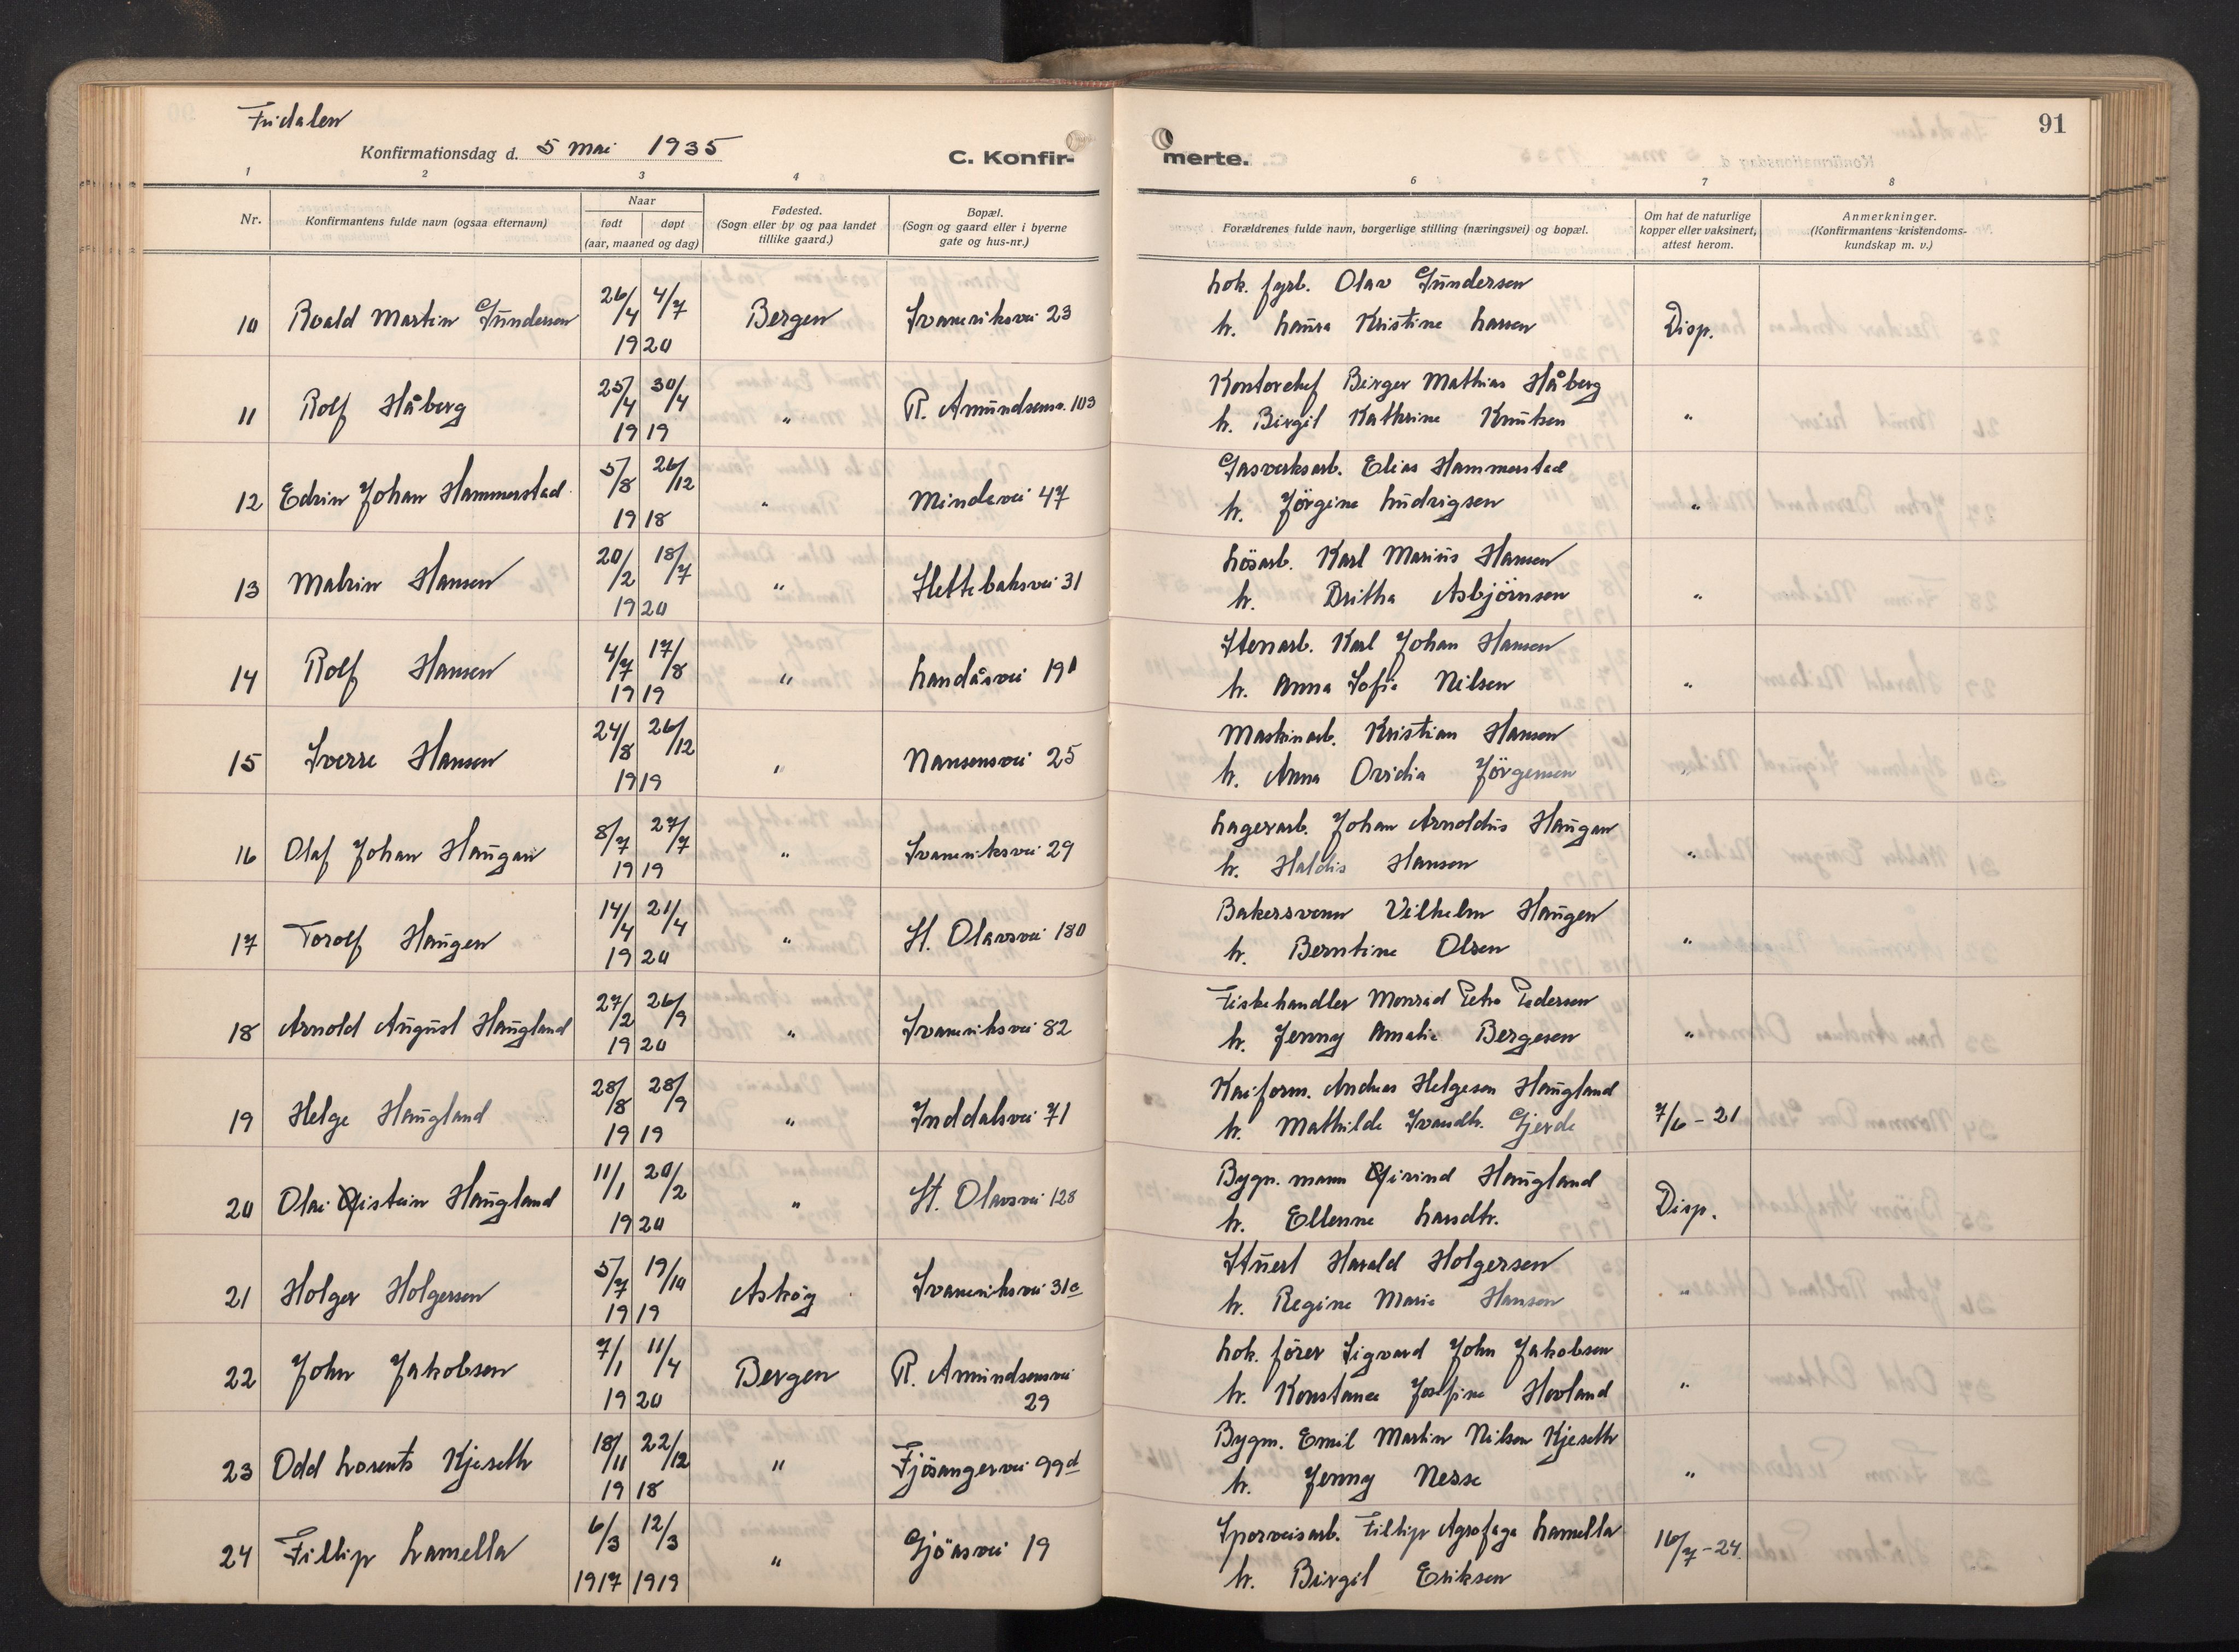 91
Fridalen
Konfirmationsdag d. 5 mai 1935
C. Konfir-
merte.
1 2 3 4 6 7 8
Nr.
Konfirmantens fulde navn (ogsaa efternavn)
Naar
født døpt
(aar, maaned og dag)
Fødested.
(Sogn eller by og paa landet
tillike gaard.)
Bopæl.
(Sogn og gaard eller i byerne
gate og hus-nr.)
Forældrenes fulde navn, borgerlige stilling (næringsvei) og bopæl.
Om hat de naturlige
kopper eller vaksinert,
attest herom.
Anmerkninger.
(Konfirmantens kristendoms-
kundskap m. v.)
26/4 4/7 Lok. fyrb. Olav Gundersen
10 Roald Martin Gundersen Bergen Svaneviksvei 23 h. Laura Kristine Larsen Disp.
1920
25/4 30/4 Kontorchef Birger Mathias Håberg
11 Rolf Håberg " R. Amundsensv. 103 h. Birgit Kathrine Knutsen "
1919
5/8 26/12 Gasverksarb. Elias Hammerstad
12 Edvin Johan Hammerstad " Mindevei 47 h. Jörgine Ludvigsen "
1918
20/2 18/7 Lösarb. Karl Marius Hansen
13 Malvin Hansen " Slettebaksvei 31 h. Britha Asbjörnsen "
1920
4/7 17/8 Stenarb. Karl Johan Hansen
14 Rolf Hansen " Landåsvei 19 h. Anna Sofie Nilsen "
1919
24/8 26/12 Maskinarb. Kristian Hansen
15 Sverre Hansen " Nansensvei 25 h. Anna Ovidia Jörgensen "
1919
8/7 27/7 Lagerarb. Johan Arnoldus Haugan
16 Olaf Johan Haugan " Svaneviksvei 29 h. Haldis Hansen "
1919
14/4 21/4 Bakersvenn Vilhelm Haugen
17 Torolf Haugen " St. Olavsvei 180 h. Berntine Olsen "
1920
27/2 26/9 Fiskehandler Monrad Petra Pedersen
18 Arnold August Haugland " Svaneviksvei 82 h. Jenny Amalie Bergesen "
1920
28/8 28/9 Kaiform. Andreas Helgesen Haugland
19 Helge Haugland " Inddalsvei 71 h. Mathilde Ivarsdtr. Gjerde 7/6-21
1919
11/1 20/2 Bygn. mann Øivind Haugland
20 Olai Øistein Haugland " St. Olavsvei 128 h. Ellenne Larsdtr. Disp.
1920
5/7 19/10 Stuert Harald Holgersen
21 Holger Holgersen Askøy Svaneviksvei 31c h. Regine Marie Hansen "
1919
7/1 11/4 Lok. förer Sigvard John Jakobsen
22 John Jakobsen Bergen R. Amundsensvei h. Konstance Josefine Hovland "
1920 29
18/11 22/12 Bygm. Emil Martin Nilsen Kjeseth
23 Odd Lorents Kjeseth " Fjösangervei 99d h. Jenny Nesse "
1918
6/3 12/3 Sporveisarb. Fillip Agrofaga Lamella
24 Fillip Lamella " Gjöasvei 19 h. Birgit Eriksen 16/7-24.
1917 1919